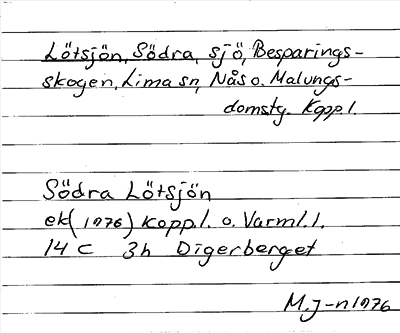 Lötsjön, Södra, sjö, Besparings-
skogen, Lima sn, Nås o. Malungs-
domstg. Kopp.l.
Södra Lötsjön
ek(1976) Kopp.l. o. Värml.l.
14 C 3h Digerberget
M.J-n 1976